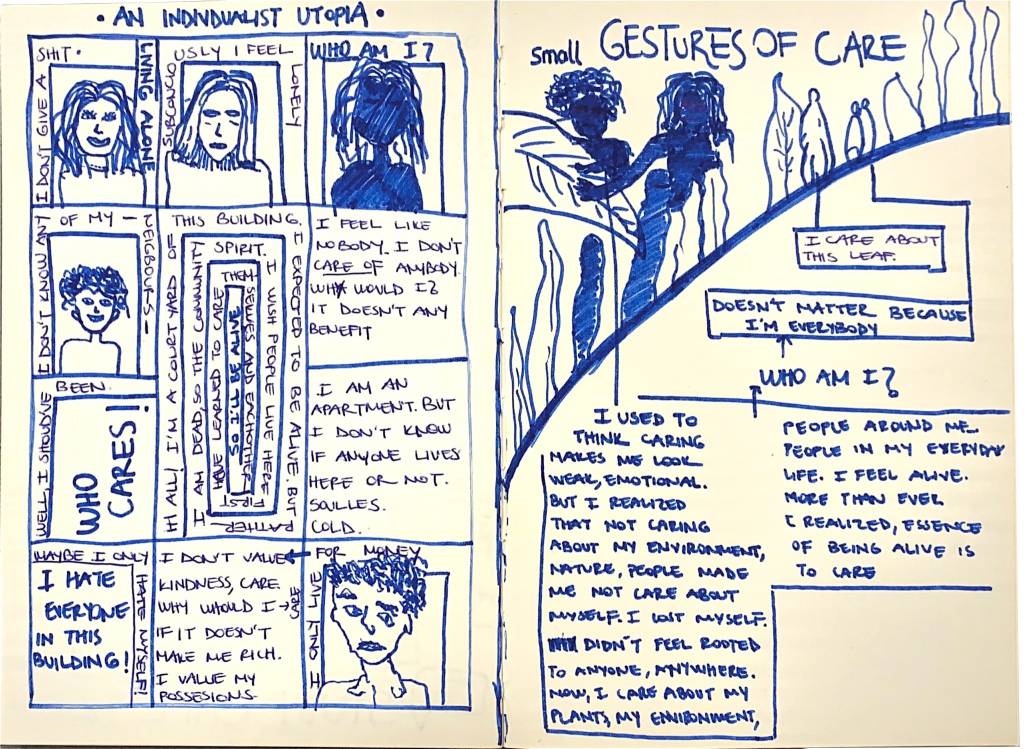 • AN INDIVIDUALIST UTOPIA •
I DON'T GIVE A
SHIT.
LIVING ALONE
SUBSCONCIO
USLY I FEEL
LONELY
WHO AM I?
I DON'T KNOW ANY
OF MY —
NEIGBOURS —
WELL, I SHOULD'VE
BEEN.
WHO
CARES!
HI ALL! I'M A COURTYARD OF
THIS BUILDING.
I EXPECTED TO BE ALIVE. BUT
I AM DEAD, SO THE COMMUNITY
SPIRIT.
I WISH PEOPLE LIVE HERE
RATHER
FIRST
HAVE LEARNED TO CARE
THEM-
SELVES AND EACHOTHER
SO I'LL BE ALIVE
I FEEL LIKE
NOBODY. I DON'T
CARE OF ANYBODY.
WHY WOULD I?
IT DOESN'T ANY
BENEFIT
I AM AN
APARTMENT. BUT
I DON'T KNOW
IF ANYONE LIVES
HERE OR NOT.
SOULLES.
COLD.
MAYBE I ONLY
HATE MYSELF!
I HATE
EVERYONE
IN THIS
BUILDING!
I DON'T VALUE
KINDNESS, CARE.
WHY WHOULD I →
CARE
IF IT DOESN'T
MAKE ME RICH.
I VALUE MY
POSSESIONS.
I ONLY LIVE
FOR MONEY
small GESTURES OF CARE
I CARE ABOUT
THIS LEAF.
DOESN'T MATTER BECAUSE
I'M EVERYBODY
WHO AM I?
I USED TO
THINK CARING
MAKES ME LOOK
WEAK, EMOTIONAL.
BUT I REALIZED
THAT NOT CARING
ABOUT MY ENVIRONMENT,
NATURE, PEOPLE MADE
ME NOT CARE ABOUT
MYSELF. I LOST MYSELF.
DIDN'T FEEL ROOTED
TO ANYONE, ANYWHERE.
NOW, I CARE ABOUT MY
PLANTS, MY ENVIRONMENT,
PEOPLE AROUND ME.
PEOPLE IN MY EVERYDAY
LIFE. I FEEL ALIVE.
MORE THAN EVER
I REALIZED, ESSENCE
OF BEING ALIVE IS
TO CARE